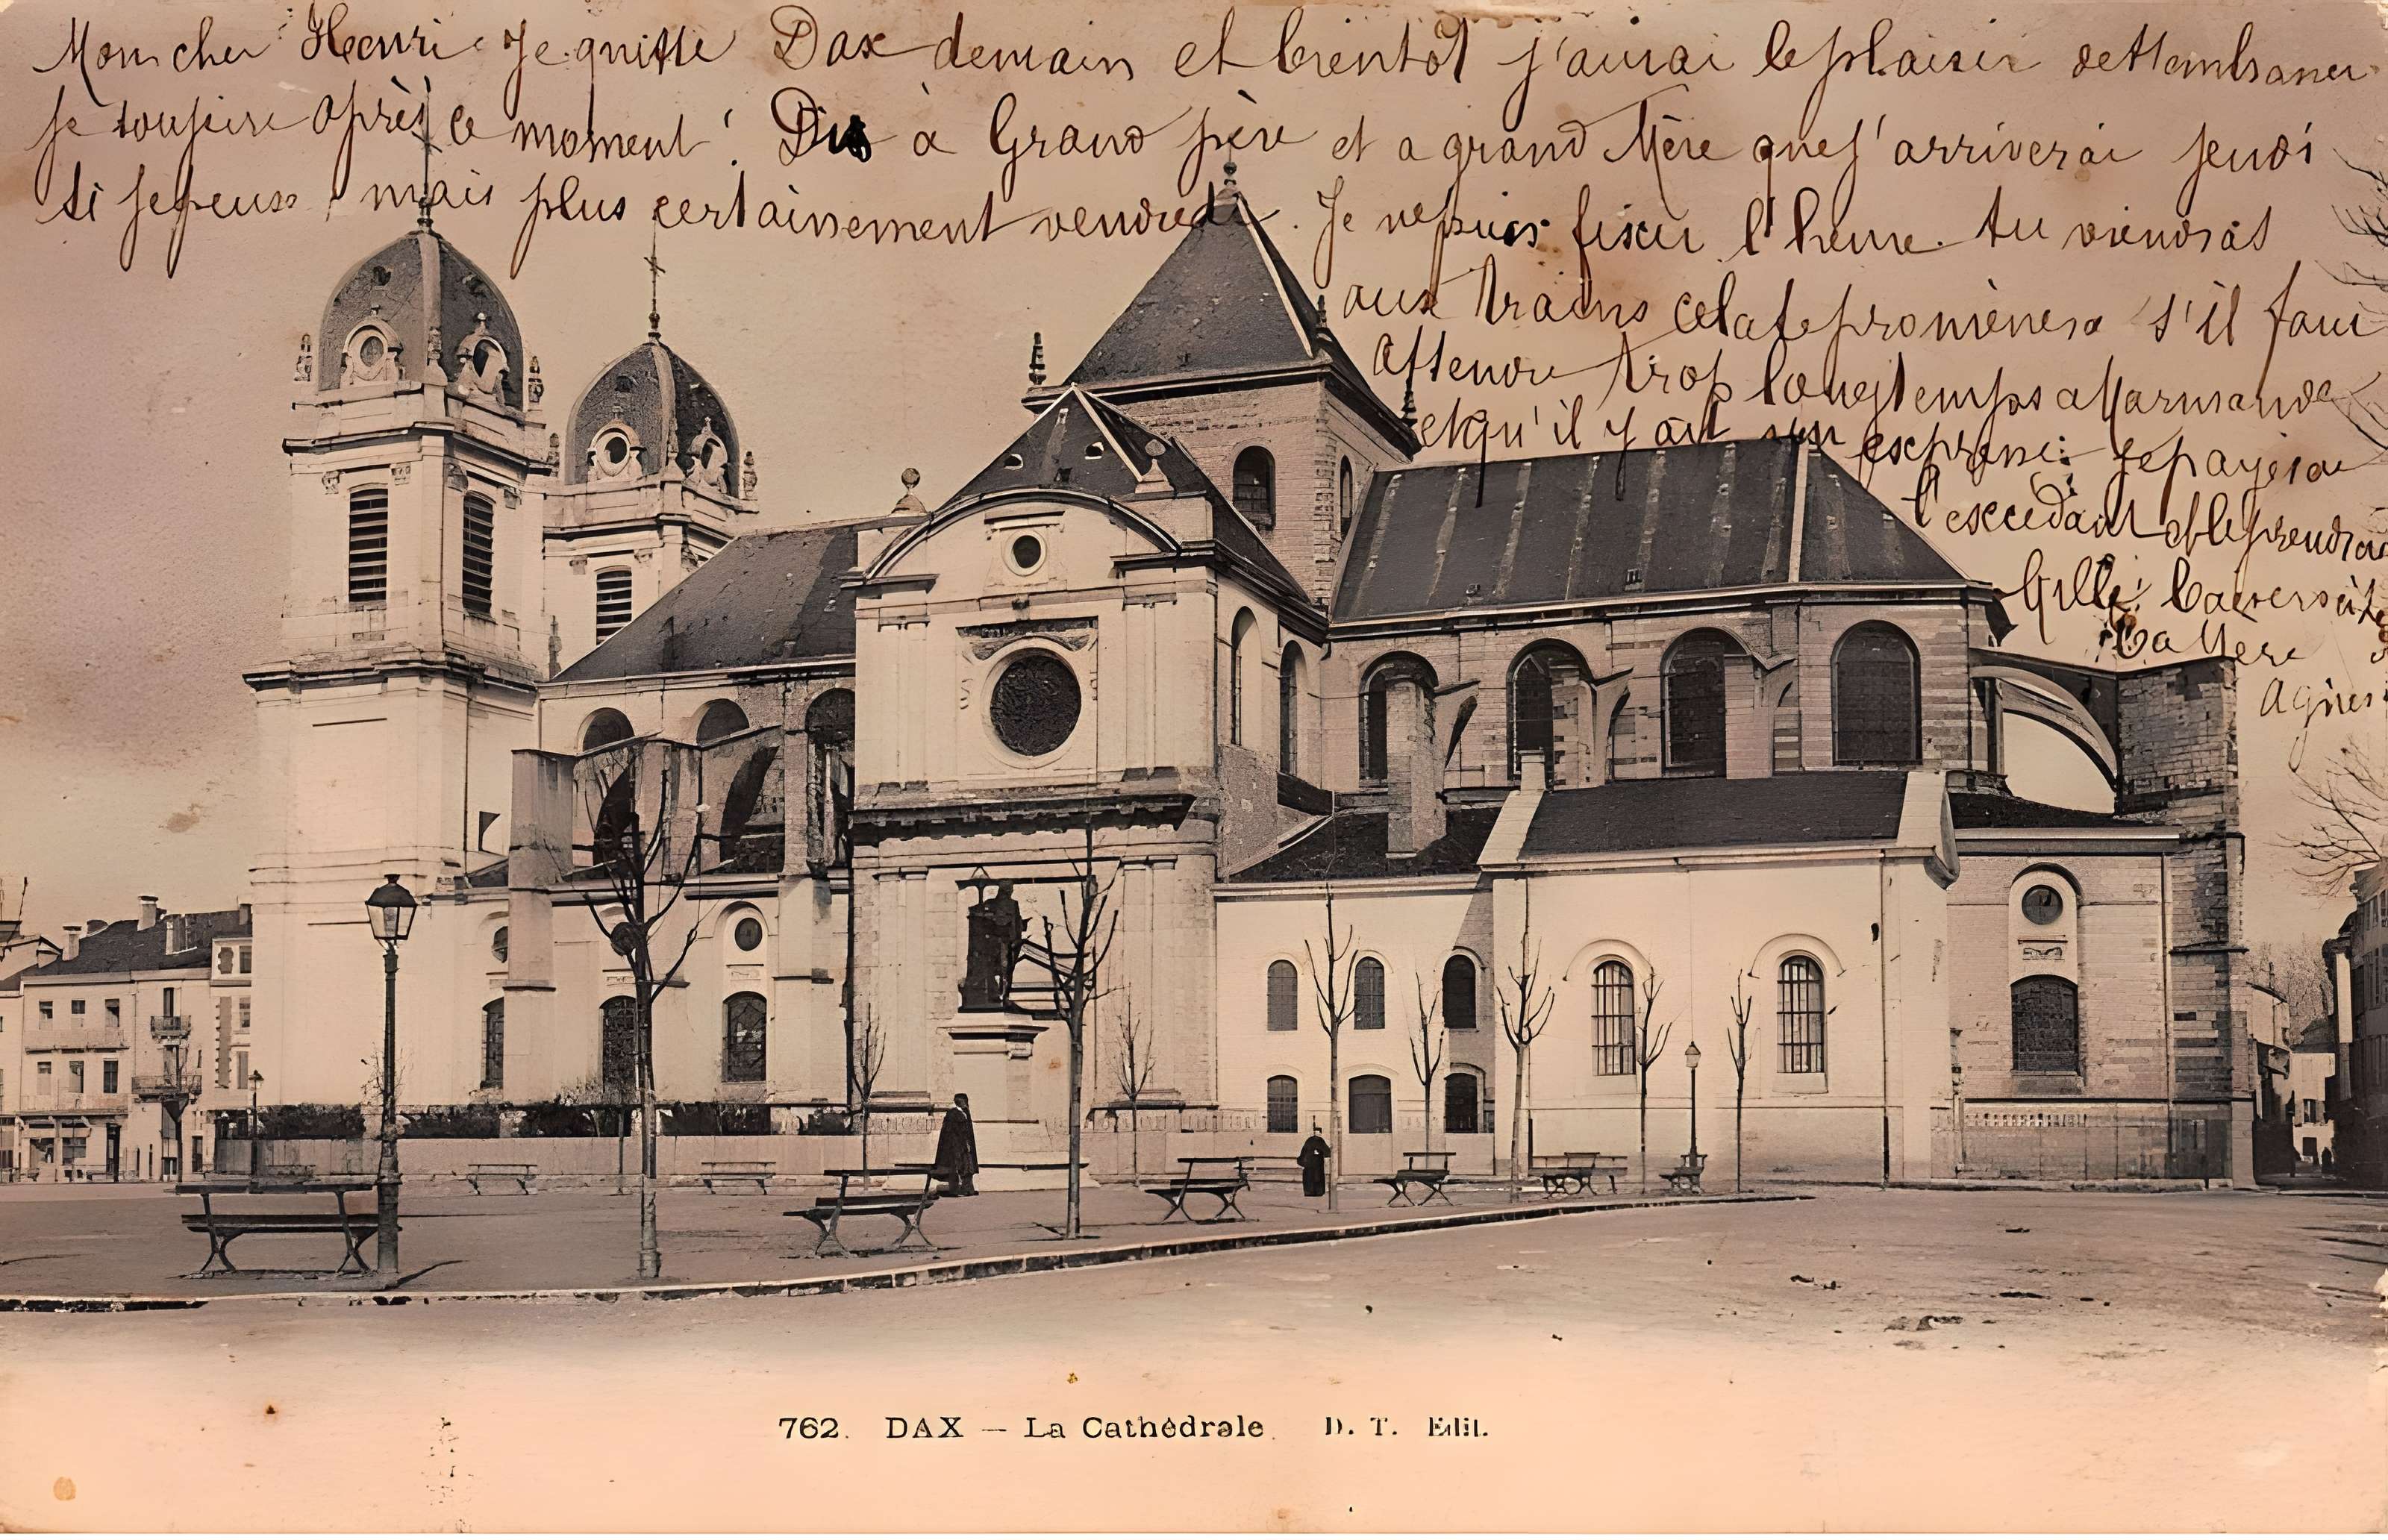 Mon cher Henri. Je quitte Dax demain et bientôt j'aurai le plaisir de t'embrasser
je soupire après ce moment! Dis à Grand père et a grand Mère que j'arriverai jeudi
si je peux, mais plus certainement vendredi. Je ne puis fixer l'heure. tu viendras
aux trains cela te promènera s'il faut
attendre trop longtemps a Marmande
et qu'il y ait un express: je payerai
l'excédant et le prendrai
Mille baisers
ta Mère
Agnès
762. DAX — La Cathédrale. D. T. Edit.